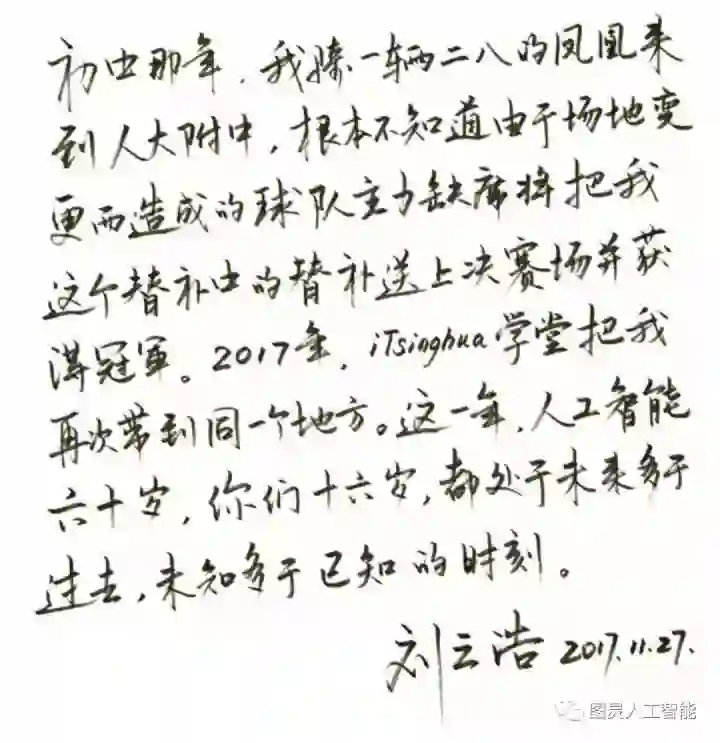 初中那年,我骑一辆二八的凤凰来
到人大附中,根本不知道由于场地变
更而造成的球队主力缺席将把我
这个替补中的替补送上决赛场并获
得冠军。2017年,iTsinghua学堂把我
再次带到同一个地方。这一年,人工智能
六十岁,你们十六岁,都处于未来多于
过去,未知多于已知的时刻。
刘云浩 2017.11.27.
图灵人工智能